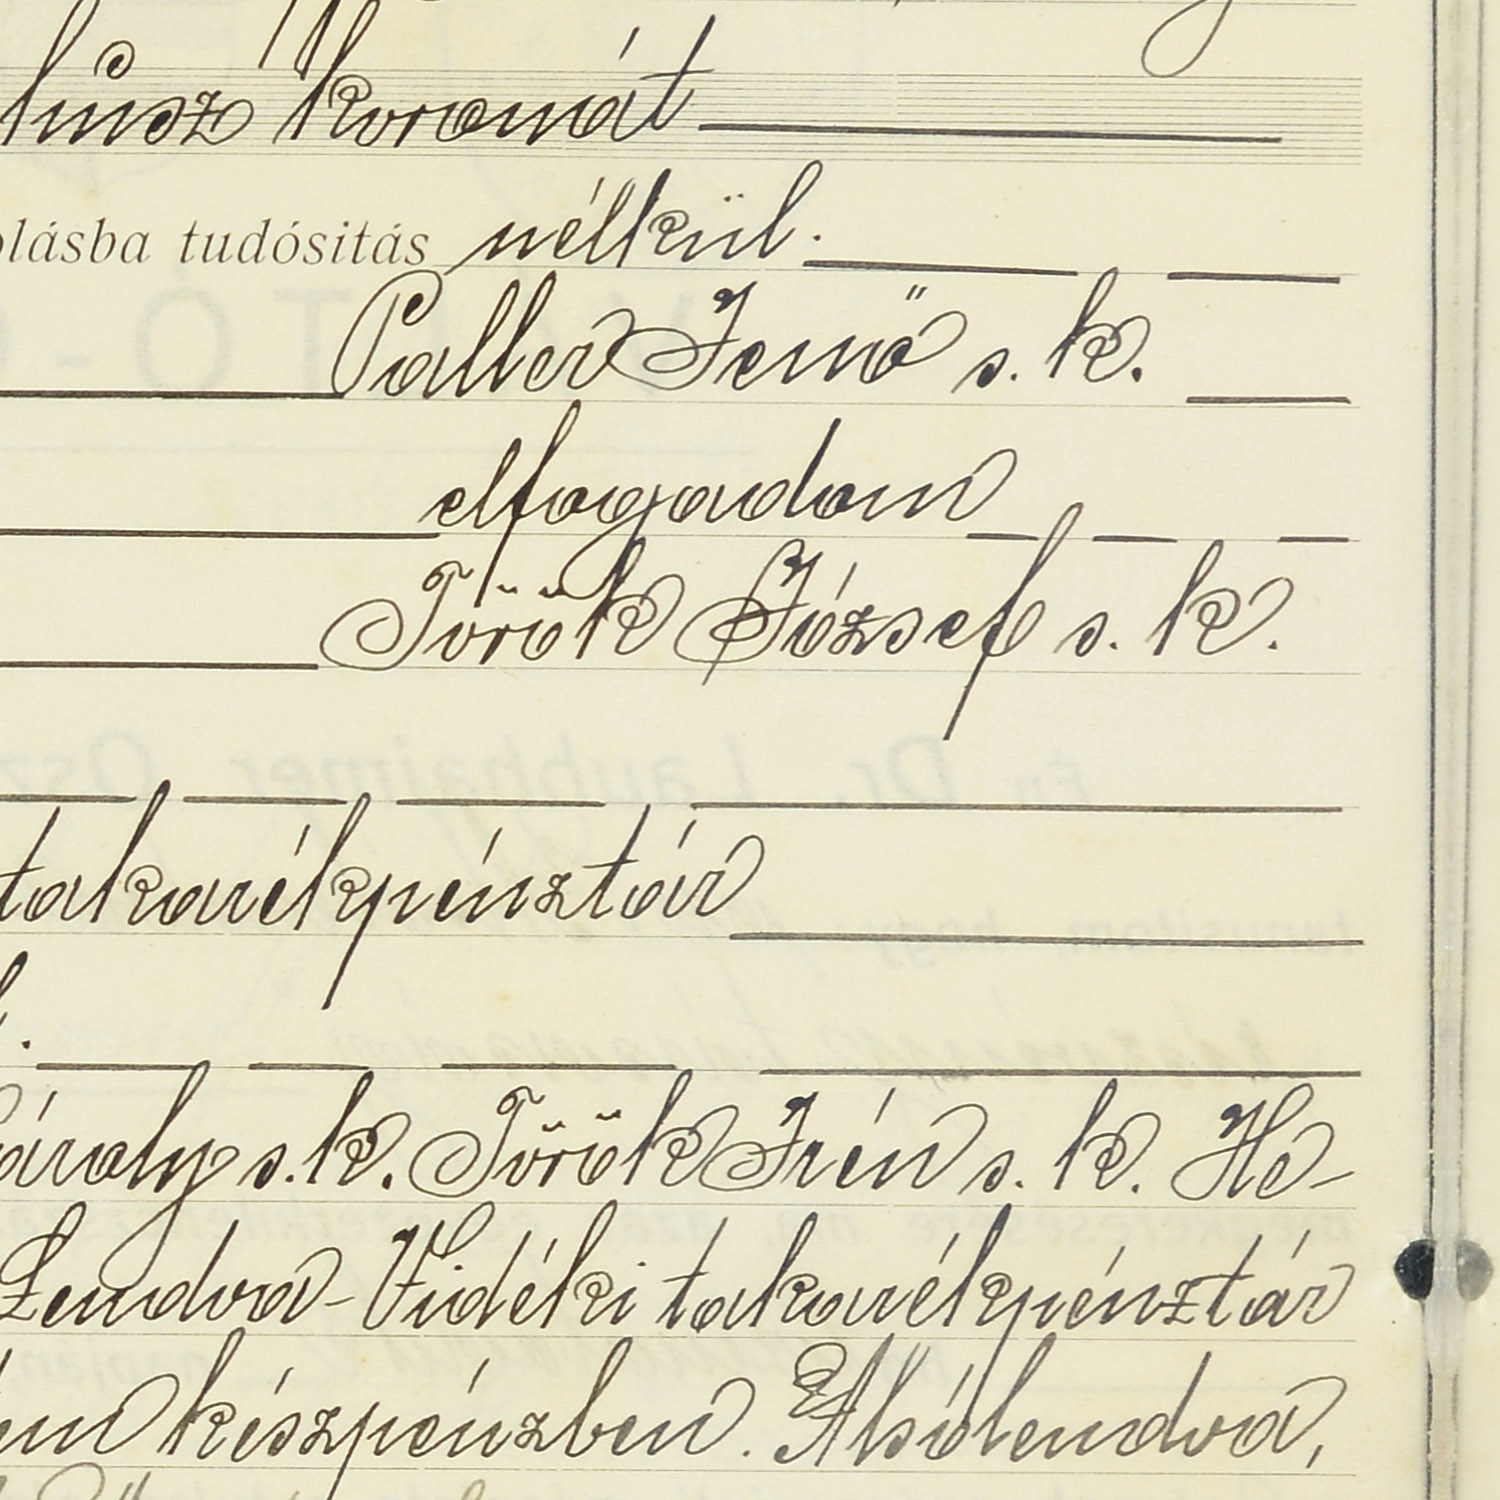 húsz koronát
olásba tudósitás nélkül.
Paller Jenő s. k.
elfogadom
Török József s. k.
takarékpénztár
ároly s. k. Török Irén s. k. He-
Lendva-Vidéki takarékpénztár
készpénzben. Alsólendva,